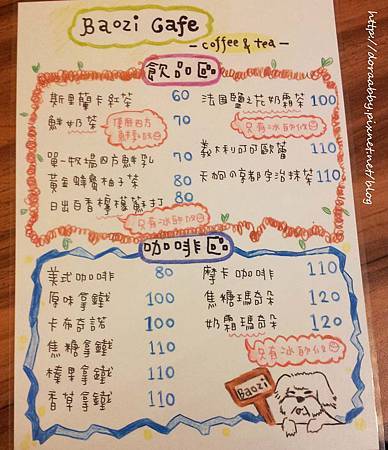 Baozi Cafe
- coffee & tea -
飲品區
斯里蘭卡紅茶 60
鮮奶茶 70
使用四方鮮乳
單一牧場四方鮮乳 70
黃金蜂蜜柚子茶 80
日出百香檸檬蘇打 80
只有冰的
法國鹽之花奶霜茶 100
只有冰的
義大利可可歐蕾 110
天狗の享都宇治抹茶 110
咖啡區
美式咖啡 80
原味拿鐵 100
卡布奇諾 100
焦糖拿鐵 110
榛果拿鐵 110
香草拿鐵 110
摩卡咖啡 110
焦糖瑪奇朵 120
奶霜瑪奇朵 120
只有冰的
Baozi
http://doraabby.pixnet.net/blog